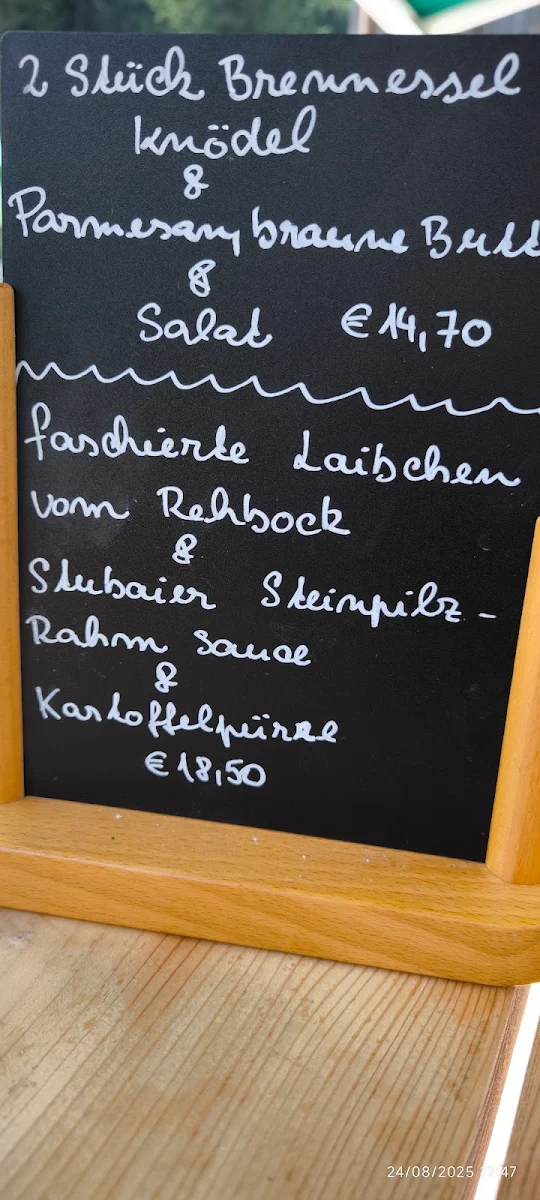 2 Stück Brennessel
knödel
&
Parmesan, braune Butt
&
Salat €14,70
faschierte Laibchen
vom Rehbock
&
Stubaier Steinpilz-
Rahm Sauce
&
Kartoffelpüree
€18,50
24/08/2025